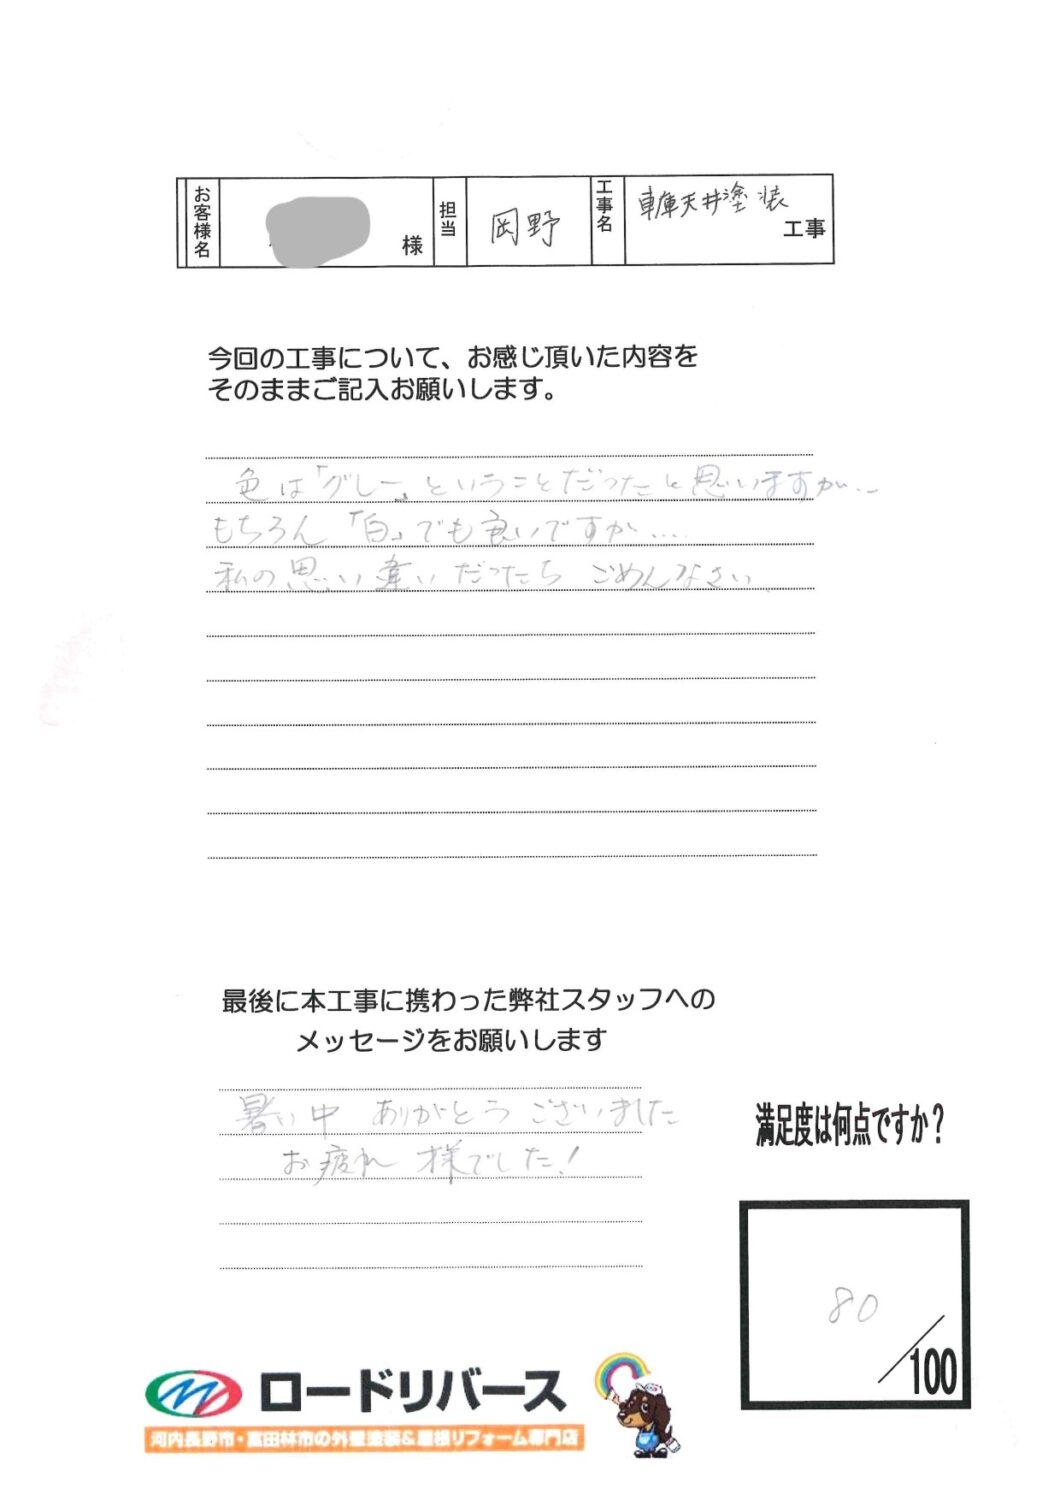 お客様名 様 担当 岡野 工事名 車庫天井塗装 工事
今回の工事について、お感じ頂いた内容を
そのままご記入お願いします。
色は「グレー」ということだったと思いますが…
もちろん「白」でも良いですが....
私の思い違いだったら ごめんなさい
最後に本工事に携わった弊社スタッフへの
メッセージをお願いします
暑い中 ありがとうございました
お疲れ様でした!
満足度は何点ですか?
80
/100
ロードリバース
河内長野市・富田林市の外壁塗装&屋根リフォーム専門店